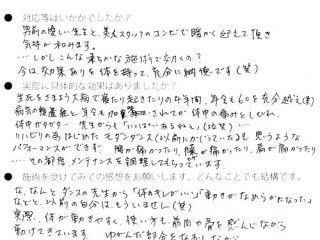 ● 対応等はいかがでしたか？
男前の優しい先生と、美人スタッフのコンビで暖かく迎えて頂き
気持が和みます。
・・・しかしこんな柔らかな施術で効くの？
今は、効果ありを体を持って、充分に納得です（笑）
● 実際に具体的な効果はありましたか？
生死をさまよう大病で寝たり起きたりの4年間、年令も60を充分越え（笑）
病気の後遺症と、年令も加算されてか体中の痛みとしびれ、
体中ガタガター 先生からも「いっぱいあるねえ」（泣笑）・・・
リハビリの為はじめたダンスで
パフォーマンスができず、腰が痛かったり、膝が痛かったり、肩が痛かったり
・・・その都度、メンテナンスを調整してもらっています
● 施術を受けてみての感想をお願いします。どんなことでも結構です。
な、なんと ダンスの先生から「体のキレがいい」「動きがなめらかになった」
などと、以前の自分は、もういません（笑）
実際、体が動きやすく、使い方も筋肉や骨を感じながら
動けてきています。 ゆがんだ部分を